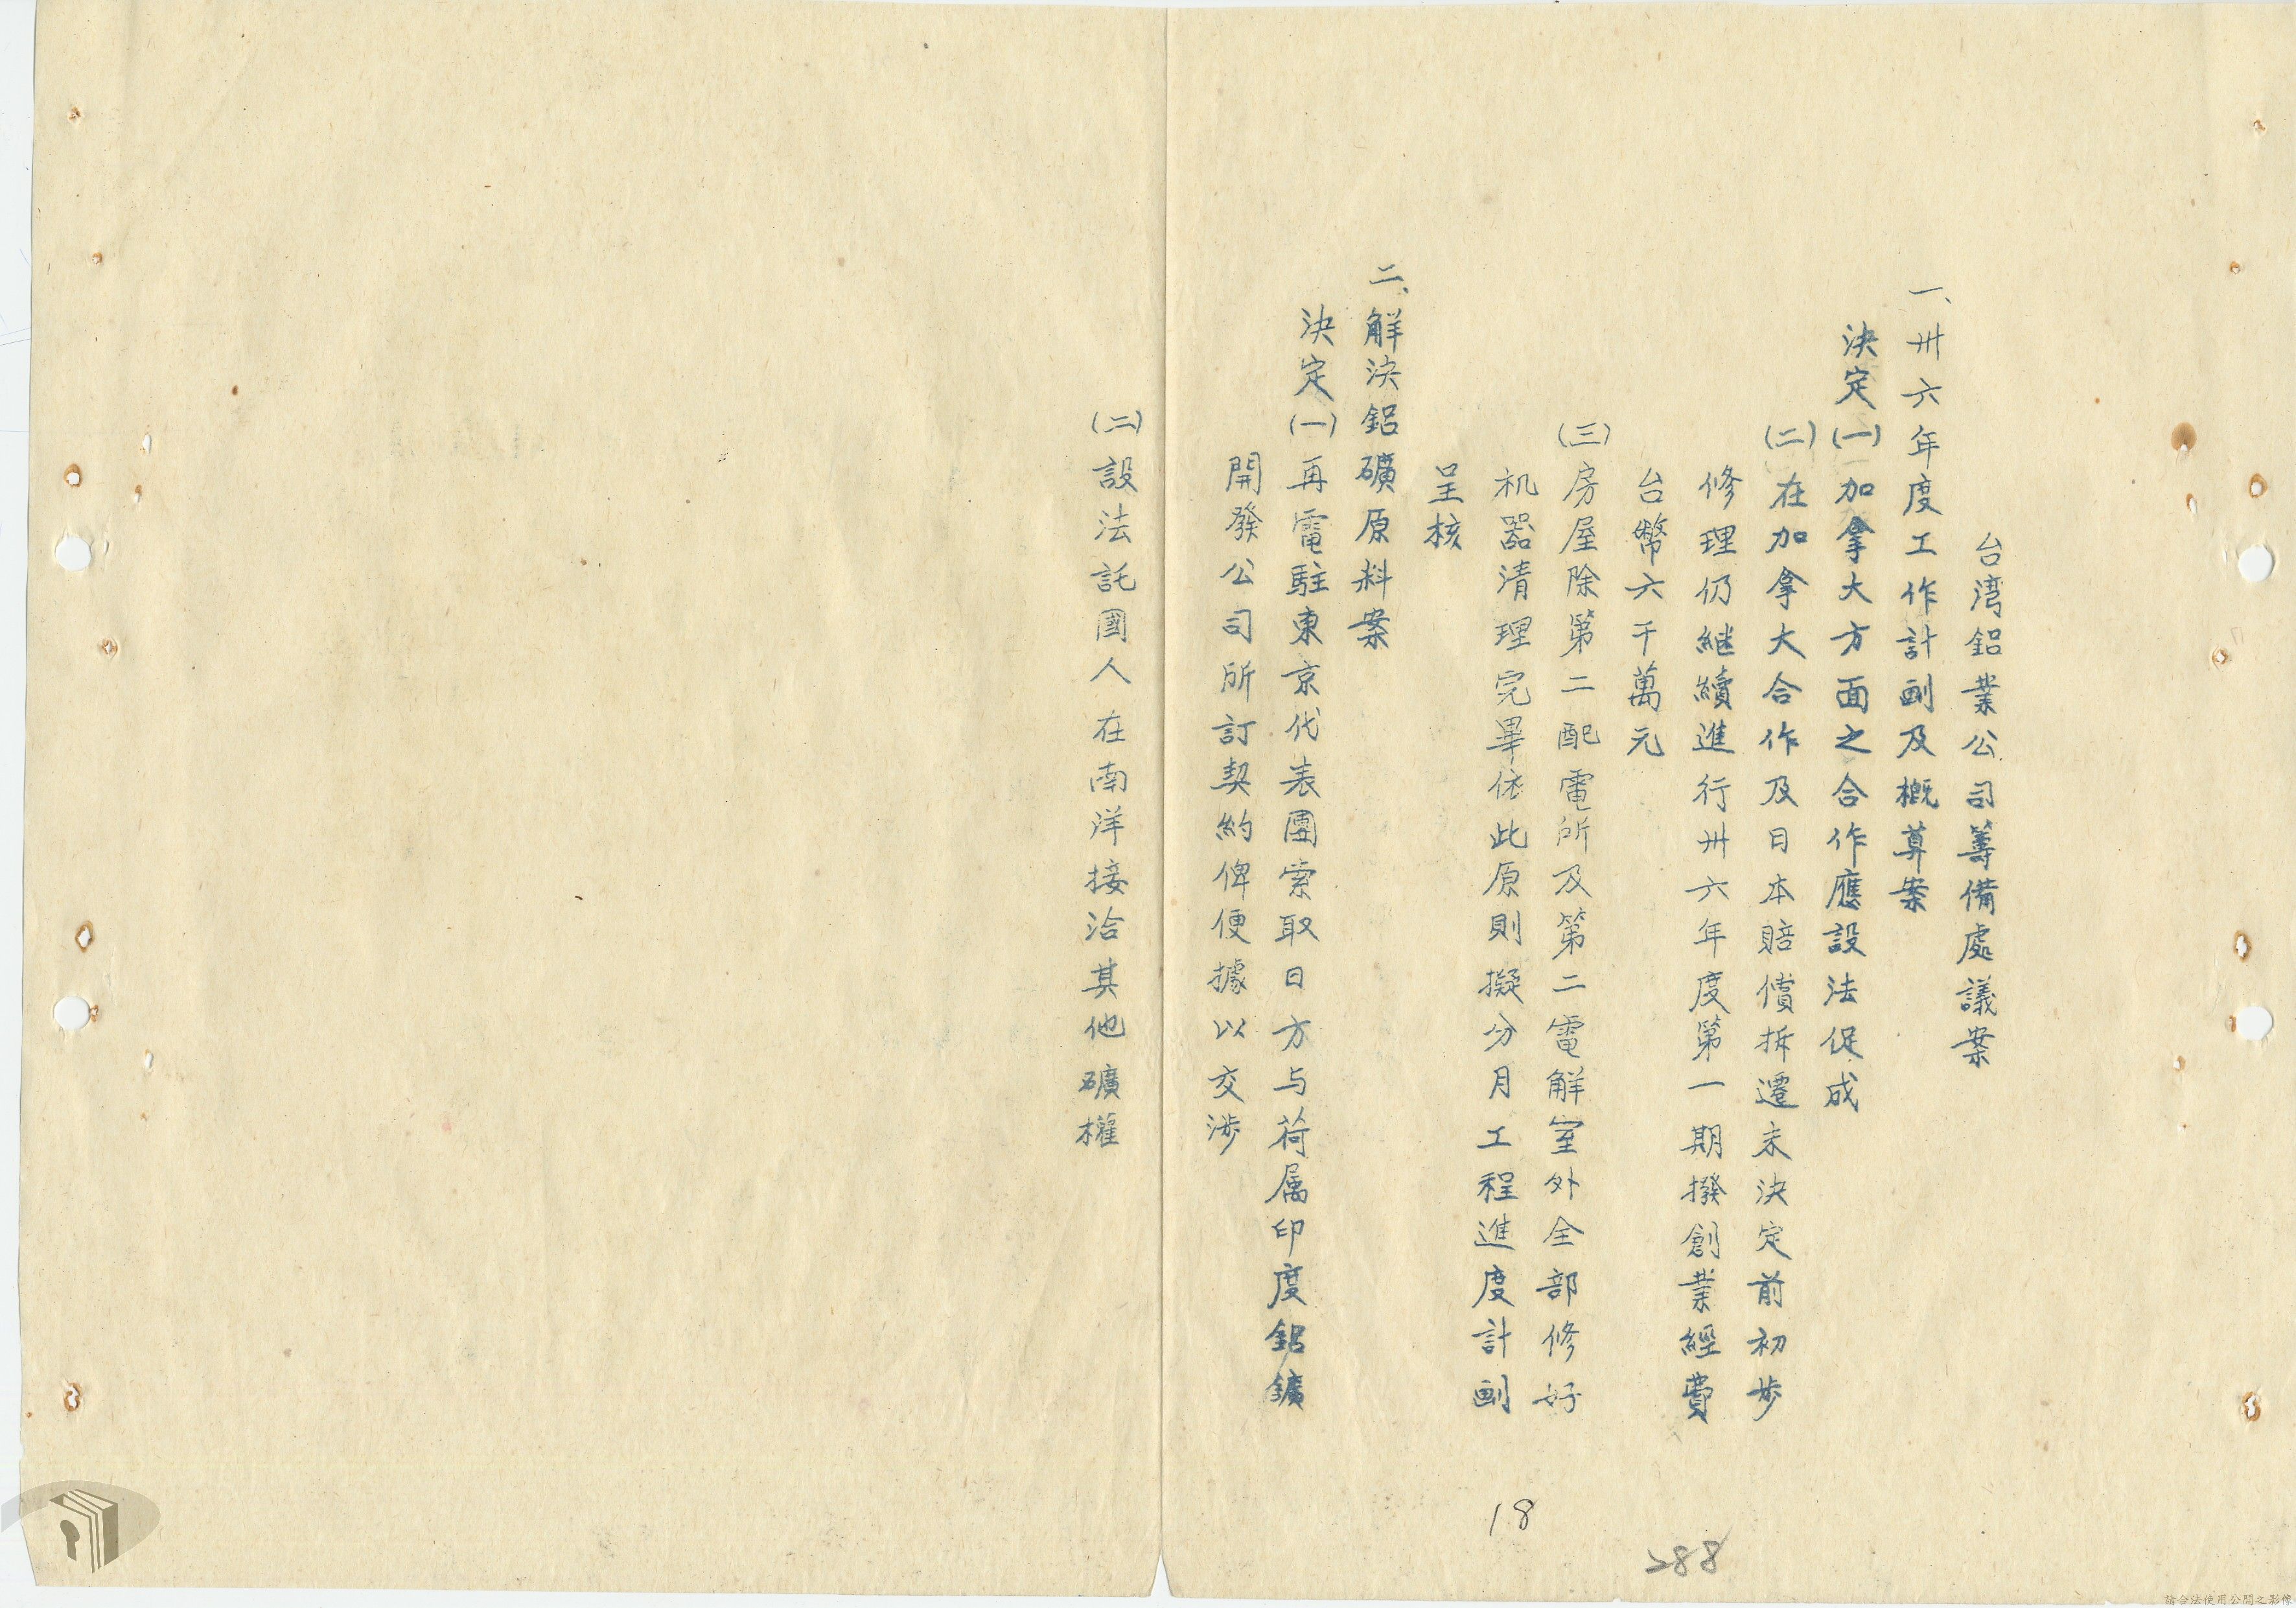 台湾鋁業公司籌備處議案
一、卅六年度工作計劃及概算案
決定(一)加拿大方面之合作應設法促成
(二)在加拿大合作及日本賠償拆遷未決定前初步
修理仍継續進行卅六年度第一期撥創業經費
台幣六千萬元
(三)房屋除第二配電所及第二電解室外全部修好
机器清理完畢依此原則擬分月工程進度計劃
呈核
二、解決鋁礦原料案
決定(一)再電駐東京代表團索取日方与荷属印度鋁鑛
開發公司所訂契約俾便據以交涉
(二)設法託國人在南洋接洽其他礦權
18
288
請合法使用公開之影像